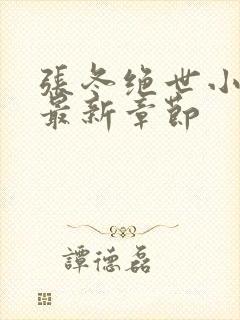 張冬绝世小
最新章節
譚德磊